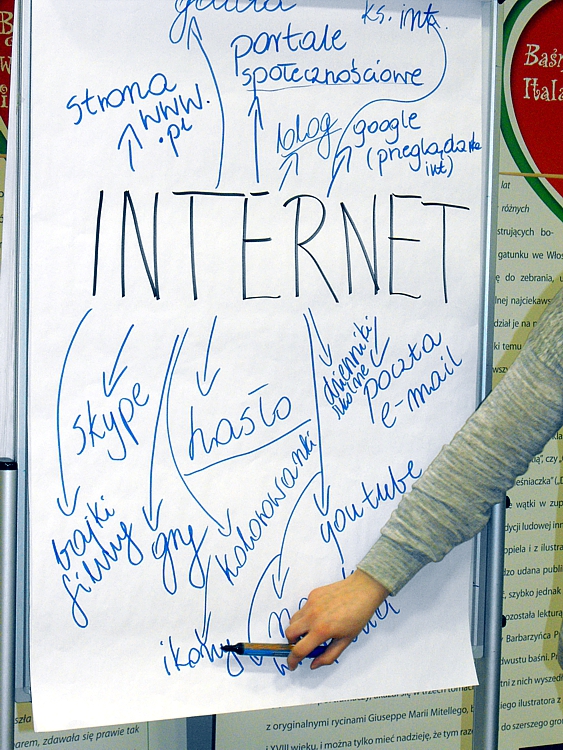 ks. int.
portale
społecznościowe
strona
www.
.pl
blog
google
(przeglądarka
int)
INTERNET
skype
hasło
dzienniki
szkolne
poczta
e-mail
bajki
filmy
gry
kolorowanki
youtube
ikony
Baśn
Itala
lat
różnych
strujących bo-
gatunku we Włos
ę do zebrania, u
lnej najciekaws
dział je na p
ki temu
wątki w zup
dycji ludowej inn
opiela i z ilustra
dzo udana publi
szybko jednak
ozostała lekturą
Barbarzyńca P
dwustu baśni. Pr
tni z nich wyszedł
ilustratora z
do szerszego gron
z oryginalnymi rycinami Giuseppe Marii Mitellego, b
i XVIII wieku, i można tylko mieć nadzieję, że tym razem
arem, zdawała się prawie tak